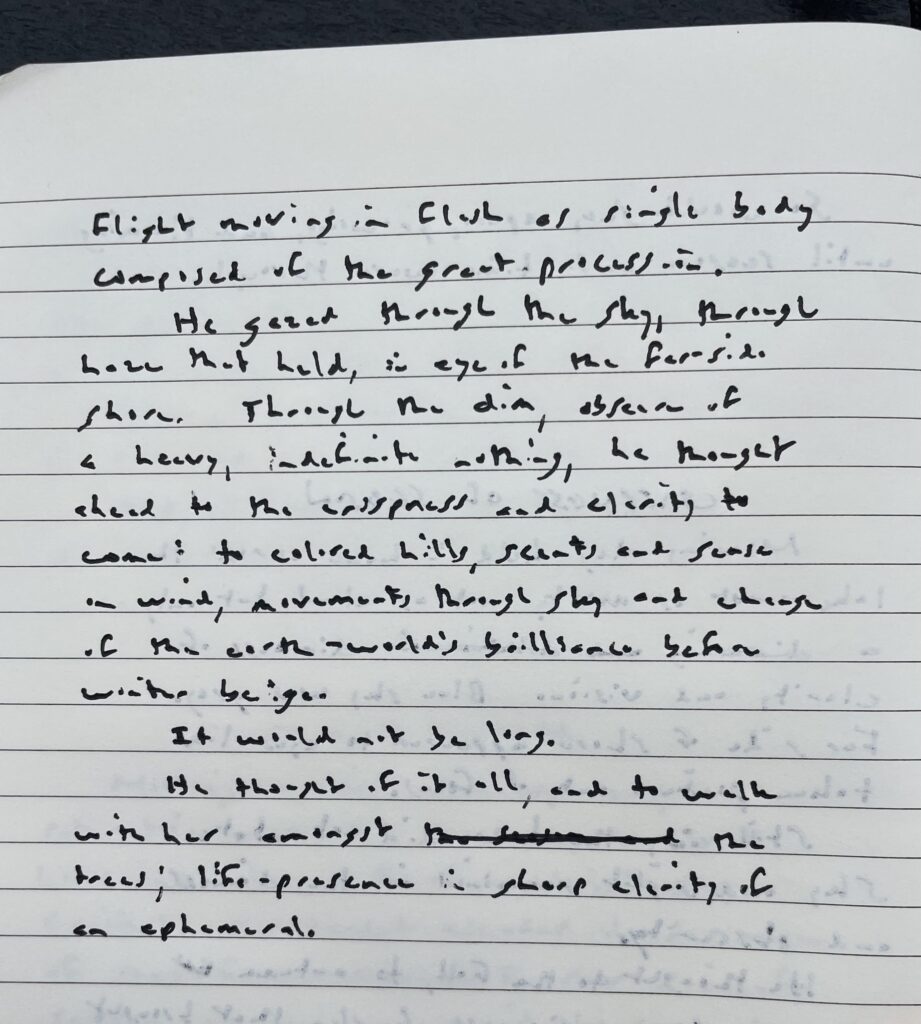 Flight moving in flesh as single body
composed of the great procession.
He gazed through the sky, through
haze that held, in eye of the far-side
shore. Through the dim, obscure of
a heavy, indefinite nothing, he thought
ahead to the crispness and clarity to
come: to colored hills, scents and sense
on wind, movements through sky and change
of the earth-world's brilliance before
winter beige.
It would not be long.
He thought of it all, and to walk
with her amongst the season and the
trees; life-presence in sharp clarity of
an ephemeral.